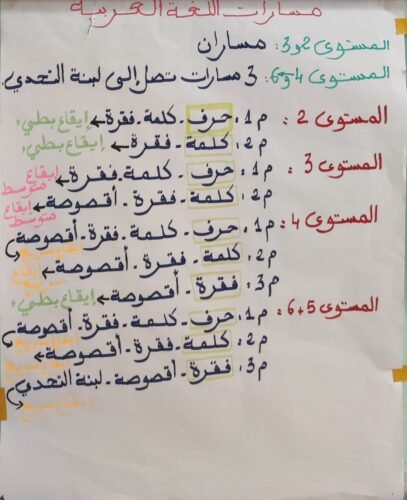 مسارات اللغة العربية
المستوى 2 و 3: مساران
المستوى 4-5-6: 3 مسارات تصل إلى لبنة التحدي.
المستوى 2: م1: حرف - كلمة - فقرة ← إيقاع بطيء
م2: كلمة - فقرة ← إيقاع بطيء
المستوى 3: م1: حرف - كلمة - فقرة ← إيقاع متوسط
م2: كلمة - فقرة - أقصوصة ← إيقاع متوسط
المستوى 4: م1: حرف - كلمة - فقرة - أقصوصة
م2: كلمة - فقرة - أقصوصة ← إيقاع
م3: فقرة - أقصوصة ← إيقاع بطيء
المستوى 5+6: م1: حرف - كلمة - فقرة - أقصوصة
م2: كلمة - فقرة - أقصوصة ← إيقاع سريع
م3: فقرة - أقصوصة - لبنة التحدي
إيقاع سريع